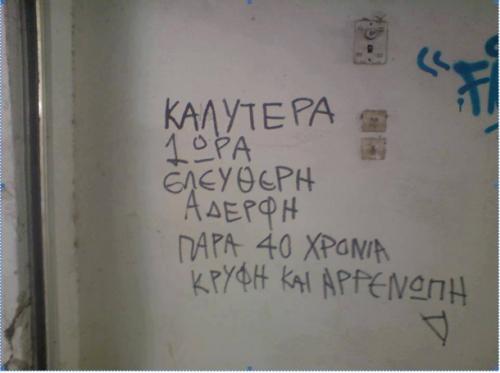 ΚΑΛΥΤΕΡΑ
1 ΩΡΑ
ΕΛΕΥΘΕΡΗ
ΑΔΕΡΦΗ
ΠΑΡΑ 40 ΧΡΟΝΙΑ
ΚΡΥΦΗ ΚΑΙ ΑΡΡΕΝΩΠΗ